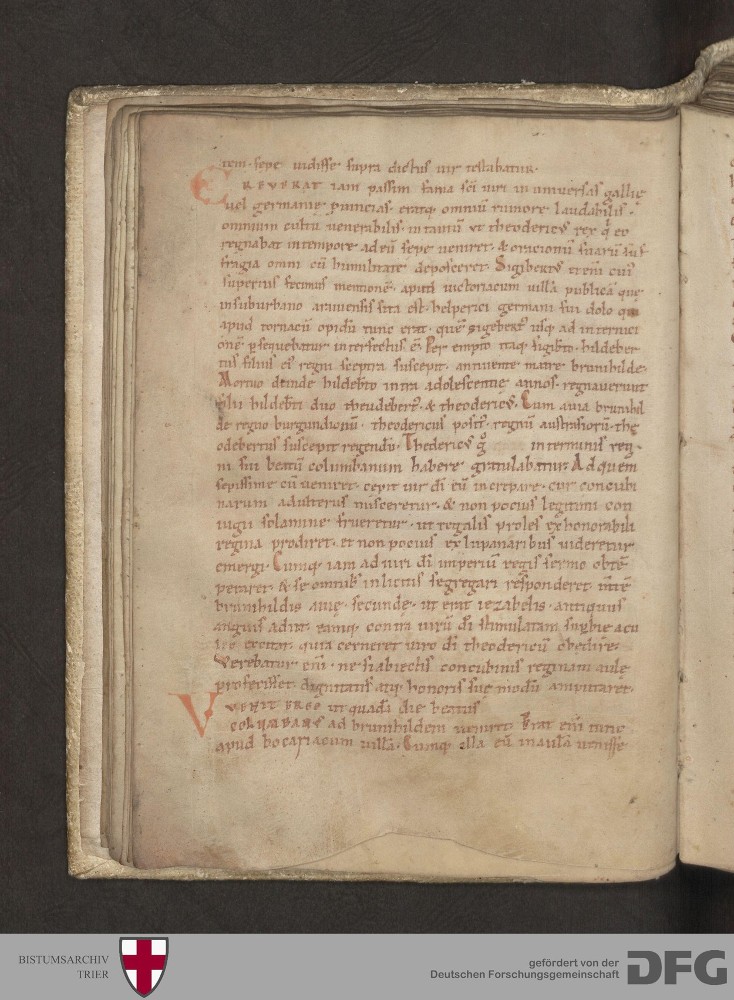 tem. sepe uidisse supra dictus uir testabatur.
CREVERAT iam passim fama sci uiri in uniuersas gallie
uel germanie puincias. eratq. omniū rumore laudabilis.
omnium cultu uenerabilis. in tantū ut theodericus rex q̇ eo
regnabat in tempore. ad eū sepe ueniret. & orationū suarū suf
fragia omni cū humilitate deposceret. Sigibertus etem̄ cui
superius fecimus mentionē. aput uictoriacum uillā publicā que
in suburbano atra­uensis sita est. helperici germani sui dolo
apud tornacū opidū tunc erat. quē sigebert usq. ad internici
onē psequebatur interfectus ē. Per empto itaq. sigibto. hildeber
tus filius ei regni sceptra suscepit. annuente matre brunihilde.
Mortuo deinde hildebto intra adolescentie annos. regnauerunt
filii hildebti duo theudebert. & theodericus. Cum auia brunihil
de regno burgundionū. theodericus potit. regnū austrasiorū. the
odebertus suscepit regendū. Thedericus g̊ in terminis reg
ni sui beatū columbanum habere gratulabatur. Ad quem
sepissime cū ueniret. cepit uir di eū increpare. cur concubi
narum adulteriis misceretur. & non pocius legitimi con
iugii solamine frueretur. ut regalis proles ex honorabili
regina prodiret. et non pocius ex lupanaribus uideretur
emergi. Cumq. iam ad uiri di imperiū regis sermo obtē
peraret. & se omnib inlicitis segregari responderet. mtē
brunihildis auie. secunde. ut erat iezabelis. antiquus
anguis adiit. eamq. contra uirū di stimulatam supbie acu
leo excitat. quia cerneret uiro di theodericū obedire.
Verebatur em̄. ne si abiectis concubinis reginam aule
prefecisset. dignitatis atq. honoris sue modū amputaret.
VENIT ERGO ut quadā die beatus
COLUMBANS ad brunihildem ueniret. Erat em̄ tunc
apud bocariacum uillā. Cumq. illa eū in aulā uenisse
BISTUMSARCHIV
TRIER
gefördert von der
Deutschen Forschungsgemeinschaft
DFG